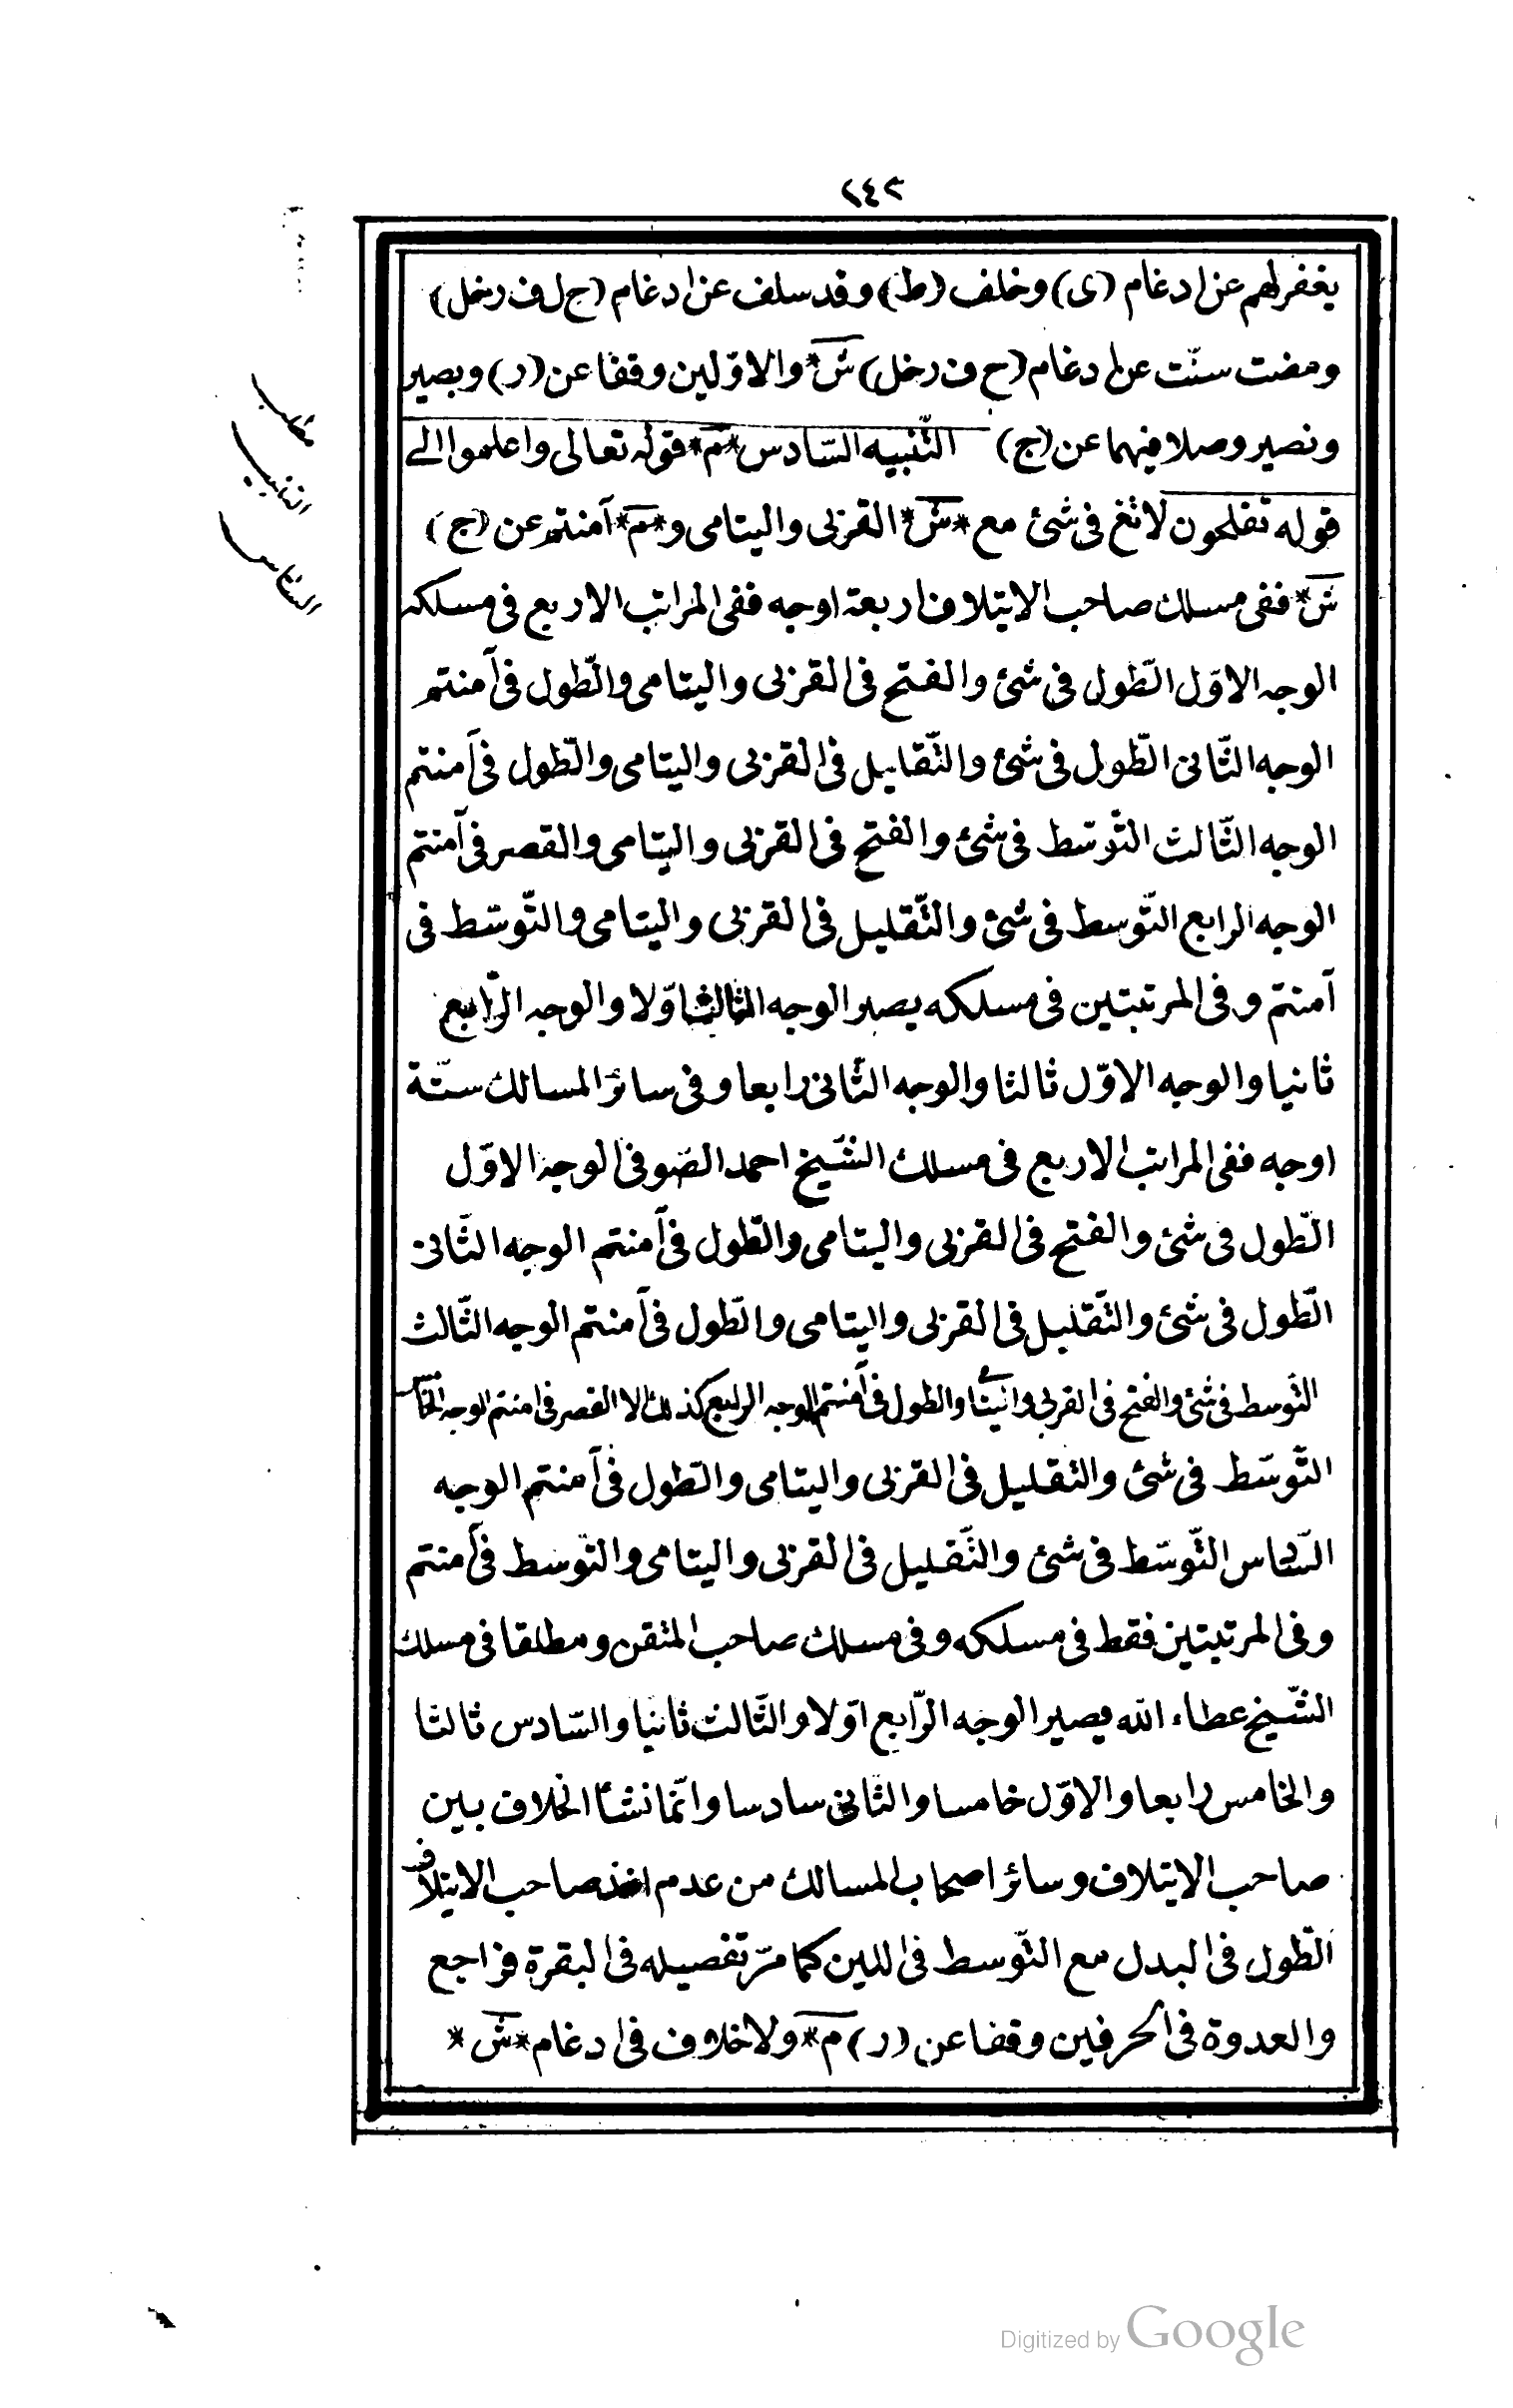 ٢٤٢
يغفر لهم عن ادغام (ى) وخلف (ط) وقد سلف عن ادغام (ح ل ف رخل)
ومضت سنّت عن ادغام (ح ف رخل) ش* والاوّلين وقفا عن (ر) وبصير
ونصير وصلا فيهما عن (ج) التّنبيه السّادس *م* قوله تعالى واعلموا الى
قوله تفلحون لاتغ فى شئ مع *ش* القربى واليتامى و*م* آمنتم عن (ج)
ش* ففى مسلك صاحب الايتلاف اربعة اوجه ففى المراتب الاربع فى مسلكه
الوجه الاوّل الطّول فى شئ والفتح فى القربى واليتامى والطّول فى آمنتم
الوجه الثّانى الطّول فى شئ والتّقليل فى القربى واليتامى والطّول فى آمنتم
الوجه الثّالث التّوسّط فى شئ والفتح فى القربى واليتامى والقصر فى آمنتم
الوجه الرابع التّوسط فى شئ والتّقليل فى القربى واليتامى والتّوسّط فى
آمنتم وفى المرتبتين فى مسلكه يصير الوجه الثالث اوّلا والوجه الرّابع
ثانيا والوجه الاوّل ثالثا والوجه الثّانى رابعا وفى سائر المسالك ستّة
اوجه ففى المراتب الاربع فى مسلك الشّيخ احمد الصّوفى الوجه الاوّل
الطّول فى شئ والفتح فى القربى واليتامى والطّول فى آمنتم الوجه الثّانى
الطّول فى شئ والتّقليل فى القربى واليتامى والطّول فى آمنتم الوجه الثّالث
التّوسط فى شئ والفتح فى القربى واليتامى والطول فى آمنتم الوجه الرابع كذلك الا القصر فى امنتم الوجه الخامس
التّوسّط فى شئ والتقليل فى القربى واليتامى والطّول فى آمنتم الوجه
السّادس التّوسّط فى شئ والتّقليل فى القربى واليتامى والتّوسّط فى آمنتم
وفى المرتبتين فقط فى مسلكه وفى مسلك صاحب المتقن ومطلقا فى مسلك
الشّيخ عطاء الله يصير الوجه الرّابع اوّلا والثّالث ثانيا والسّادس ثالثا
والخامس رابعا والاوّل خامسا والثانى سادسا وانّما نشأ الخلاف بين
صاحب الايتلاف وسائر اصحاب المسالك من عدم اخذ صاحب الايتلاف
الطّول فى البدل مع التّوسط فى اللين كما مرّ تفصيله فى البقرة فراجع
والعدوة فى الحرفين وقفا عن (ر) م* ولا خلاف فى ادغام *ش*
مطلب
التنبيه
السادس
Digitized by Google